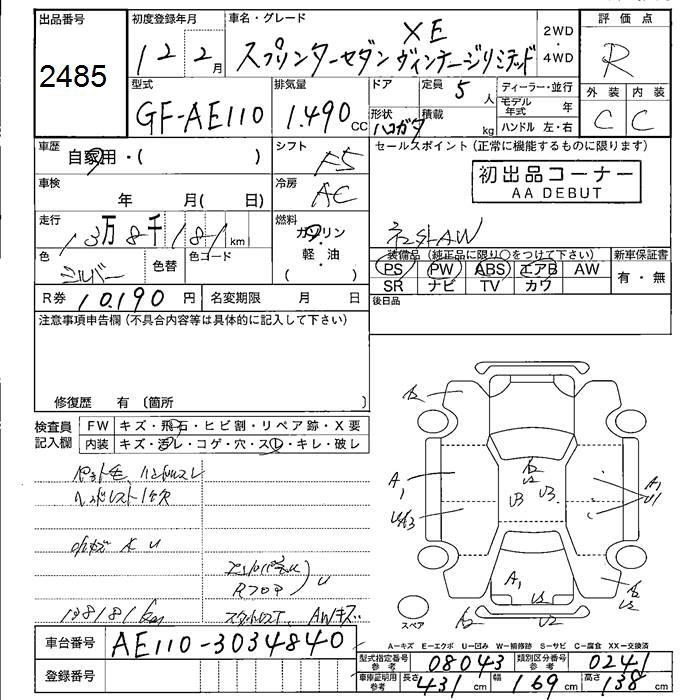 出品番号
2485
初度登録年月
12 2月
車名・グレード
XE
スプリンターセダン ヴィンテージリミテッド
2WD
・
4WD
評価点
R
型式
GF-AE110
排気量
1.490 cc
ドア
形状
ハコガタ
定員 5 人
積載 kg
ディーラー・並行
モデル年式 年
ハンドル 左・右
外装 内装
C C
車歴
自家用・( )
シフト
F5
セールスポイント(正常に機能するものに限ります)
初出品コーナー
AA DEBUT
車検
年 月( 日)
冷房
AC
走行
13万8千181 km
燃料
ガソリン
軽・油
( )
社外AW
色
シルバー
色替
色コード
装備品(純正品に限り○をつけて下さい)
新車保証書
PS PW ABS エアB AW
有・無
SR ナビ TV カワ
R券 10,190 円
名変期限 月 日
後日品
注意事項申告欄(不具合内容等は具体的に記入して下さい)
修復歴 有〔箇所 〕
検査員記入欄
FW キズ・飛石・ヒビ割・リペア跡・X要
内装 キズ・汚レ・コゲ・穴・スレ・キレ・破レ
ヘッドレスト1ケ欠
Rフロア
U
138181km
スタッドレス、AWキズ
A2
A1
U3 U3
A1
U1
A1
スペア
車台番号
AE110-3034840
登録番号
A―キズ E―エクボ U―凹み W―補修跡 S―サビ C―腐食 XX―交換済
型式指定番号 参考 08043
類別区分番号 参考 0241
車庫証明用 参考 長さ 431 cm 幅 169 cm 高さ 138 cm